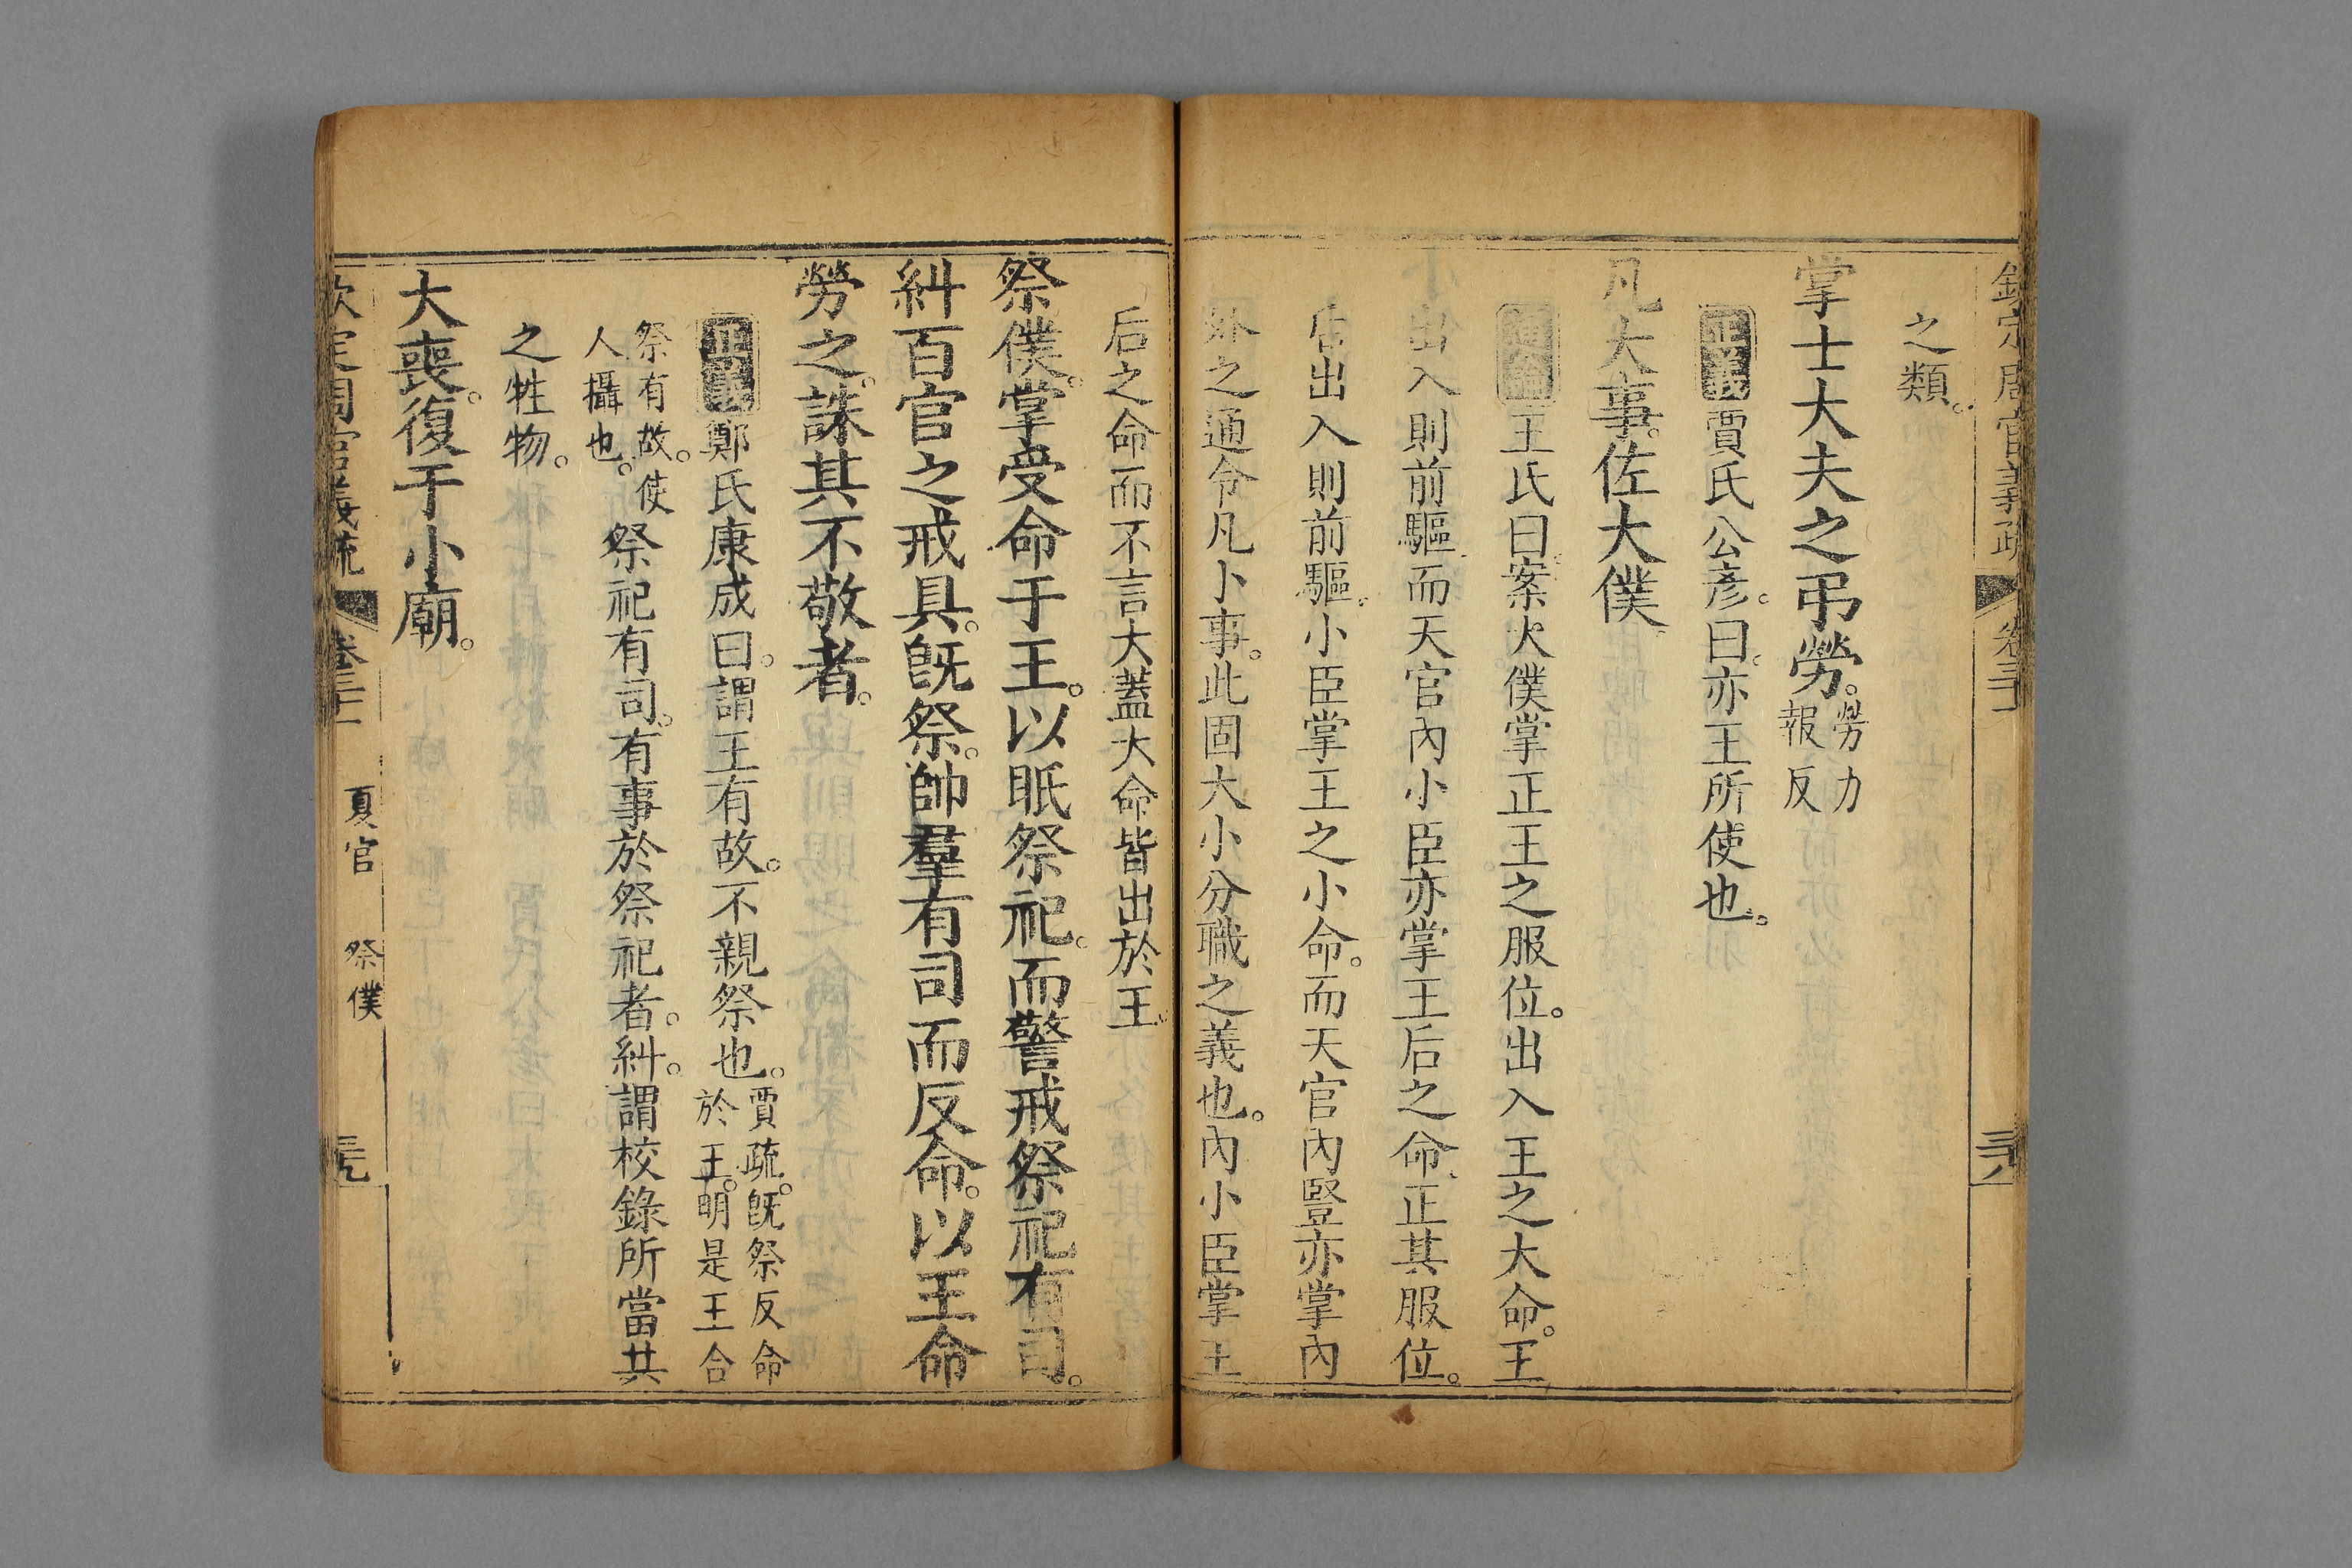 欽定周官義疏 卷三十一 三十八
之類。
掌士大夫之弔勞。勞力報反
正義 賈氏公彥。曰。亦王所使也。
凡大事。佐大僕。
通論 王氏曰。案大僕掌正王之服位。出入王之大命。王
出入則前驅。而天官內小臣亦掌王后之命。正其服位。
后出入則前驅。小臣掌王之小命。而天官內豎亦掌內
外之通令凡小事。此固大小分職之義也。內小臣掌王
后之命而不言大蓋大命皆出於王。
祭僕。掌受命于王。以眡祭祀。而警戒祭祀有司。
糾百官之戒具。旣祭。帥羣有司而反命。以王命
勞之。誅其不敬者。
正義 鄭氏康成曰。謂王有故。不親祭也。賈疏。旣祭反命於王。明是王合
祭有故。使人攝也。祭祀有司。有事於祭祀者。糾。謂校錄所當共
之牲物。
大喪。復于小廟。
欽定周官義疏 卷三十一 夏官 祭僕 三十九